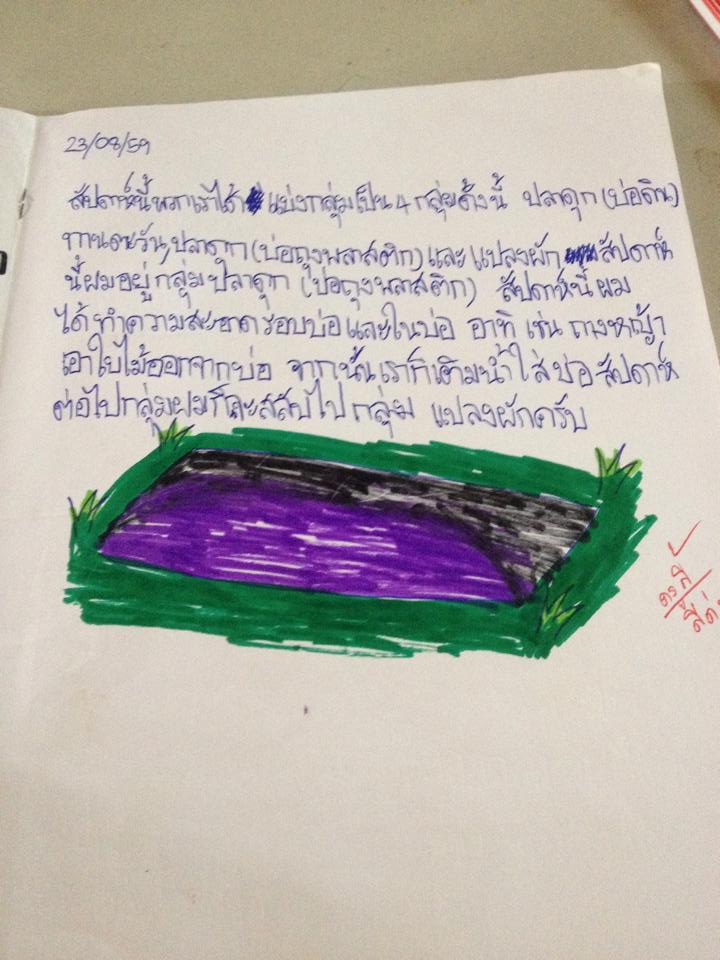 23/08/59
สัปดาห์นี้พวกเราได้ แบ่งกลุ่มเป็น 4 กลุ่มดังนี้ ปลาดุก (บ่อดิน)
ทานตะวัน, ปลาดุก (บ่อถุงพลาสติก) และ แปลงผัก สัปดาห์
นี้ผมอยู่กลุ่มปลาดุก (บ่อถุงพลาสติก) สัปดาห์นี้ ผม
ได้ทำความสะอาดรอบบ่อและในบ่อ อาทิ เช่น ถางหญ้า
เอาใบไม้ออกจากบ่อ จากนั้นเราก็เติมน้ำใส่บ่อ สัปดาห์
ต่อไปกลุ่มผมก็จะสลับไปกลุ่ม แปลงผักครับ